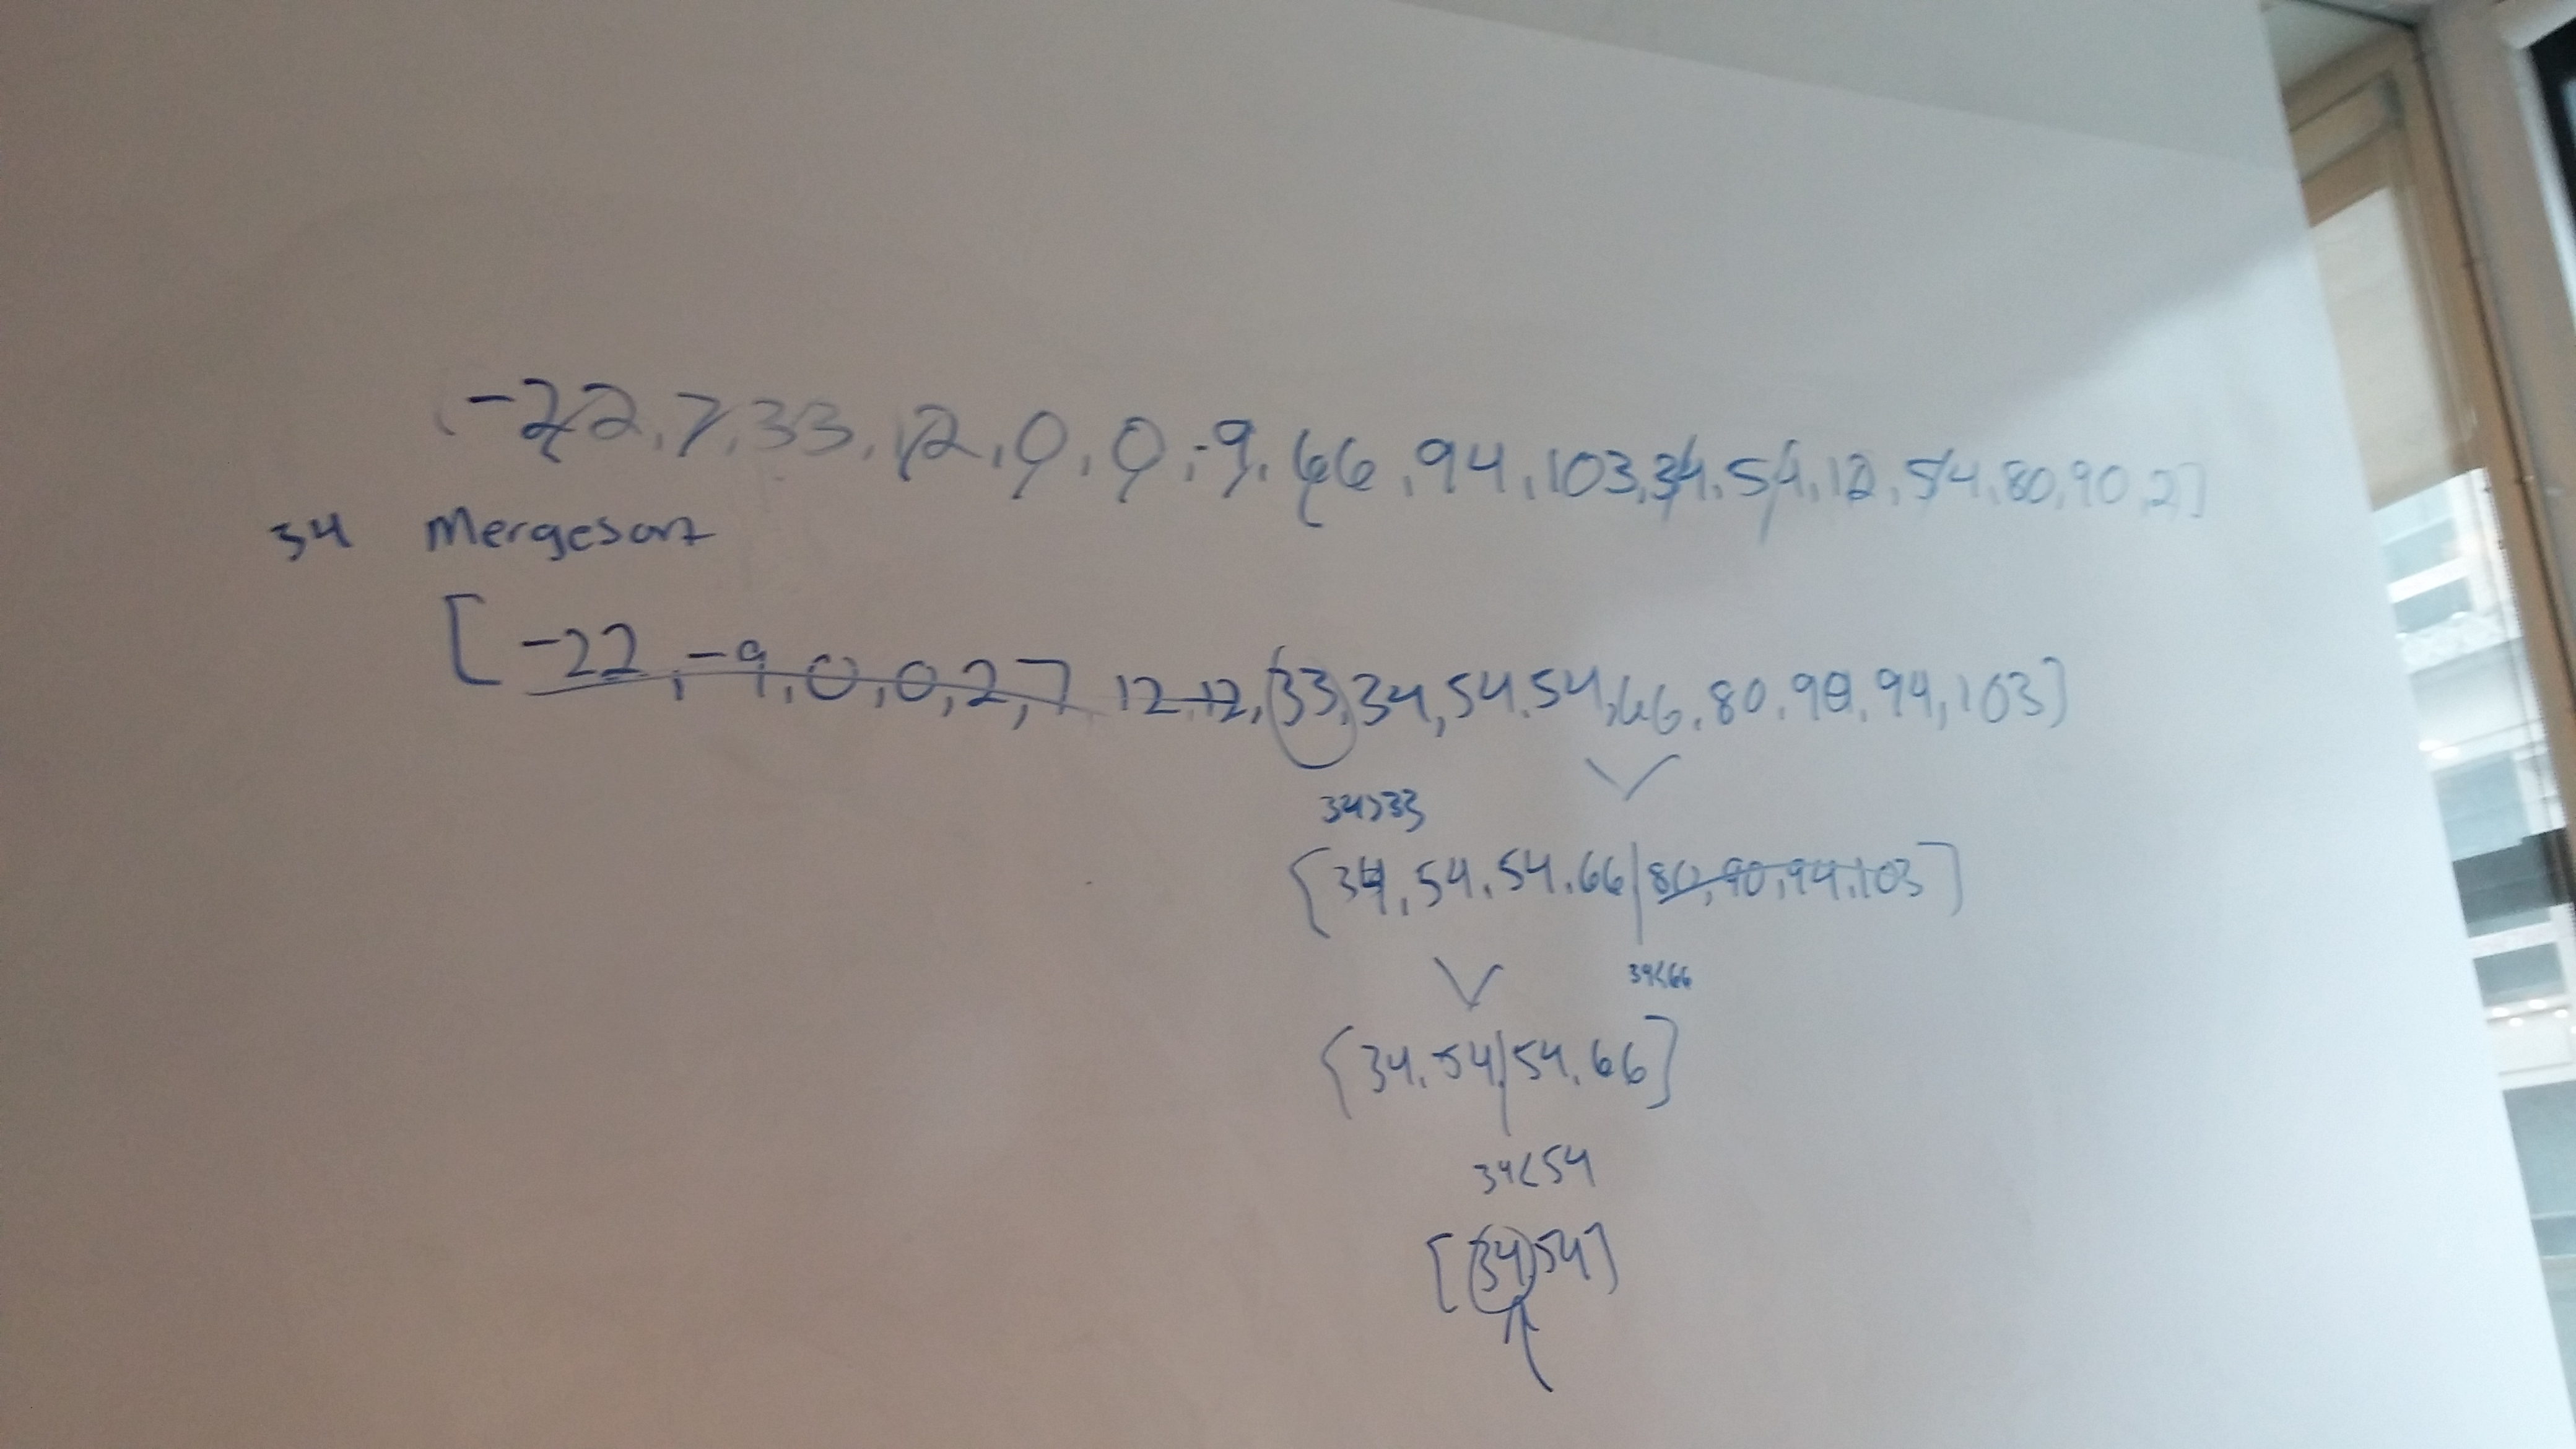 -22, 7, 33, 12, 0, 0, -9, 66, 94, 103, 34, 54, 12, 54, 80, 90, 2]
34 Mergesort
[-22, -9, 0, 0, 2, 7 12, 12, (33), 34, 54, 54, 66, 80, 90, 94, 103]
34>33
[34, 54, 54, 66|80, 90, 94, 103]
34<66
[34, 54|54, 66]
34<54
[(34), 54]